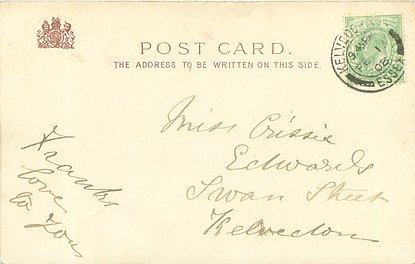 POST CARD.
THE ADDRESS TO BE WRITTEN ON THIS SIDE.
KELVEDON
ESSEX
Miss Crissie
Edwards
Swan Street
Kelvedon
Franks
love
to you